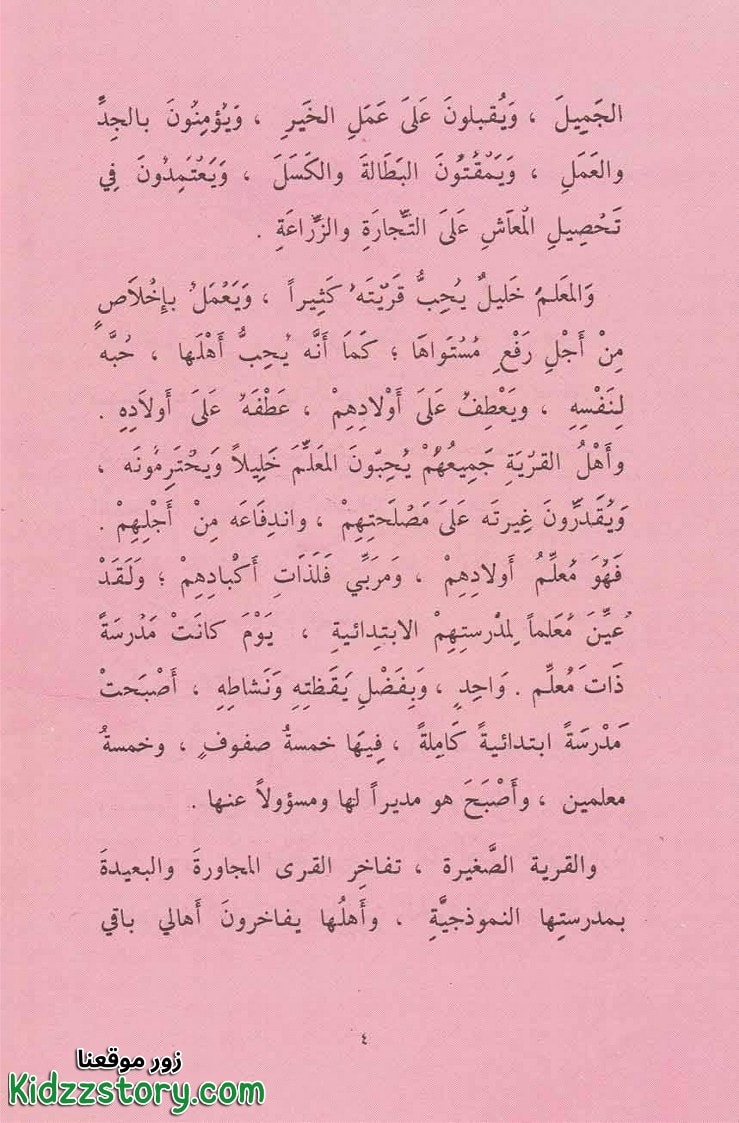 الجَمِيلَ ، وَيُقبلونَ عَلَىَ عَمَلِ الخَيرِ ، وَيُؤمِنُونَ بالجِدِّ
والعَمَلِ ، وَيَمْقُتُونَ البَطَالةَ والكَسَلَ ، وَيَعْتَمِدُونَ فِي
تَحْصِيلِ المْعَاشِ عَلىَ التِّجارَةِ والزِّراعَةِ .
وَالمعَلمُ خَليلٌ يُحِبُّ قَرْيَتَه كَثِيراً ، وَيَعْمَلُ بإِخْلاَصٍ
مِنْ أَجْلِ رَفْعِ مُسْتَواهَا ؛ كَمَا أَنَّه يُحِبُّ أَهْلَها ، حُبَّه
لِنَفْسِهِ ، ويَعْطِفُ عَلىَ أَوْلادِهِمْ ، عَطْفَهُ عَلىَ أَولادِهِ .
وأَهْلُ القَرْيَةِ جَمِيعُهُمْ يُحِبّونَ المعَلِّمَ خَلِيلاً وَيَحْتَرِمُونَه ،
وَيُقَدِّرُونَ غِيرتَه عَلىَ مَصْلَحَتِهِمْ ، واندِفَاعَه مِنْ أَجْلِهِمْ .
فَهُوَ مُعلِّمُ أَولادِهِمْ ، وَمرَبِّي فَلَذَاتِ أَكْبادِهِمْ ؛ وَلَقَدْ
عُيِّنَ مُعَلماً لمِدْرستِهِمْ الابتِدائيةِ ، يَوْمَ كانَتْ مَدْرَسَةً
ذَاتَ مُعلِّم . وَاحِدٍ ، وَبِفَضْلِ يَقَظتِهِ وَنَشاطِهِ ، أَصْبَحَتْ
مَدْرسَةً ابتدائيةً كَامِلةً ، فِيهَا خمسةُ صفوفٍ ، وخمسةُ
معلمين ، وأَصْبَحَ هو مديراً لها ومسؤولاً عنها .
والقرية الصَّغيرة ، تفاخِر القرى المجاورةَ والبعيدةَ
بمدرستِها النموذجيَّةِ ، وأَهلُها يفاخرونَ أَهالي باقي
٤
زور موقعنا
Kidzzstory.com